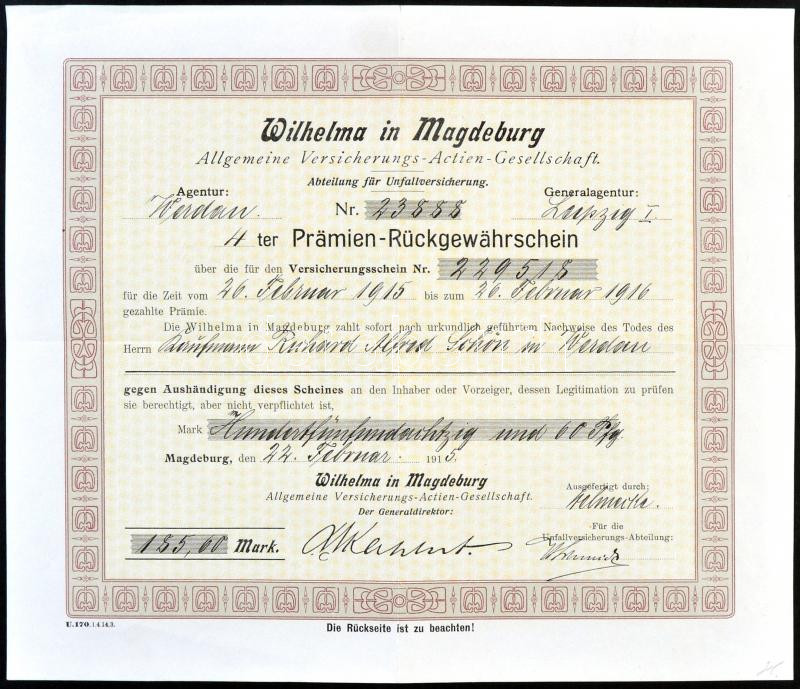 Wilhelma in Magdeburg
Allgemeine Versicherungs-Actien-Gesellschaft.
Abteilung für Unfallversicherung.
Agentur: Generalagentur:
Werdau. Nr. 23888 Leipzig I.
4 ter Prämien-Rückgewährschein
über die für den Versicherungsschein Nr. 229518
für die Zeit vom 26. Februar 1915 bis zum 26. Februar 1916
gezahlte Prämie.
Die Wilhelma in Magdeburg zahlt sofort nach urkundlich geführtem Nachweise des Todes des
Herrn Kaufmann Richard Alfred Schön in Werdau
gegen Aushändigung dieses Scheines an den Inhaber oder Vorzeiger, dessen Legitimation zu prüfen
sie berechtigt, aber nicht verpflichtet ist,
Mark Hundertfünfundachtzig und 60 Pfg.
Magdeburg, den 22. Februar 1915.
Wilhelma in Magdeburg
Allgemeine Versicherungs-Actien-Gesellschaft.
Der Generaldirektor:
Ausgefertigt durch:
Für die
Unfallversicherungs-Abteilung:
185,60 Mark.
U.170.1.4.14.3.
Die Rückseite ist zu beachten!